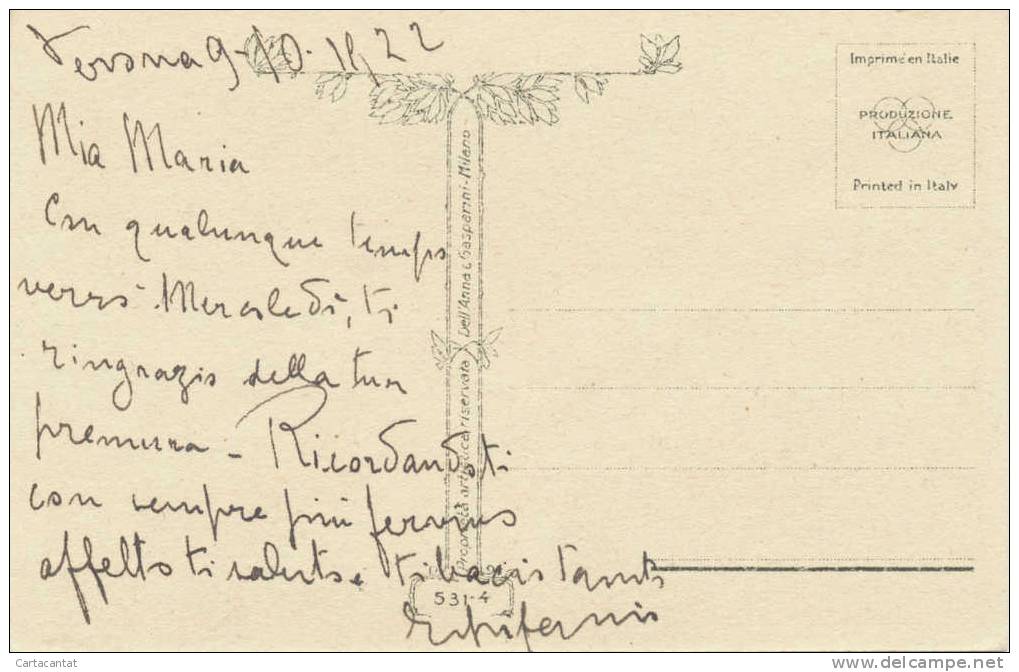 Verona 9-10-1922
Mia Maria
Con qualunque tempo
verrò Mercoledì, ti
ringrazio della tua
premura - Ricordandoti
con sempre più
affetto ti saluto e ti bacio tanto
Imprimé en Italie
PRODUZIONE
ITALIANA
Printed in Italy
Proprietà artistica riservata Dell'Anna e Gasparini - Milano
531-4
Cartacantat
http://www.delcampe.net